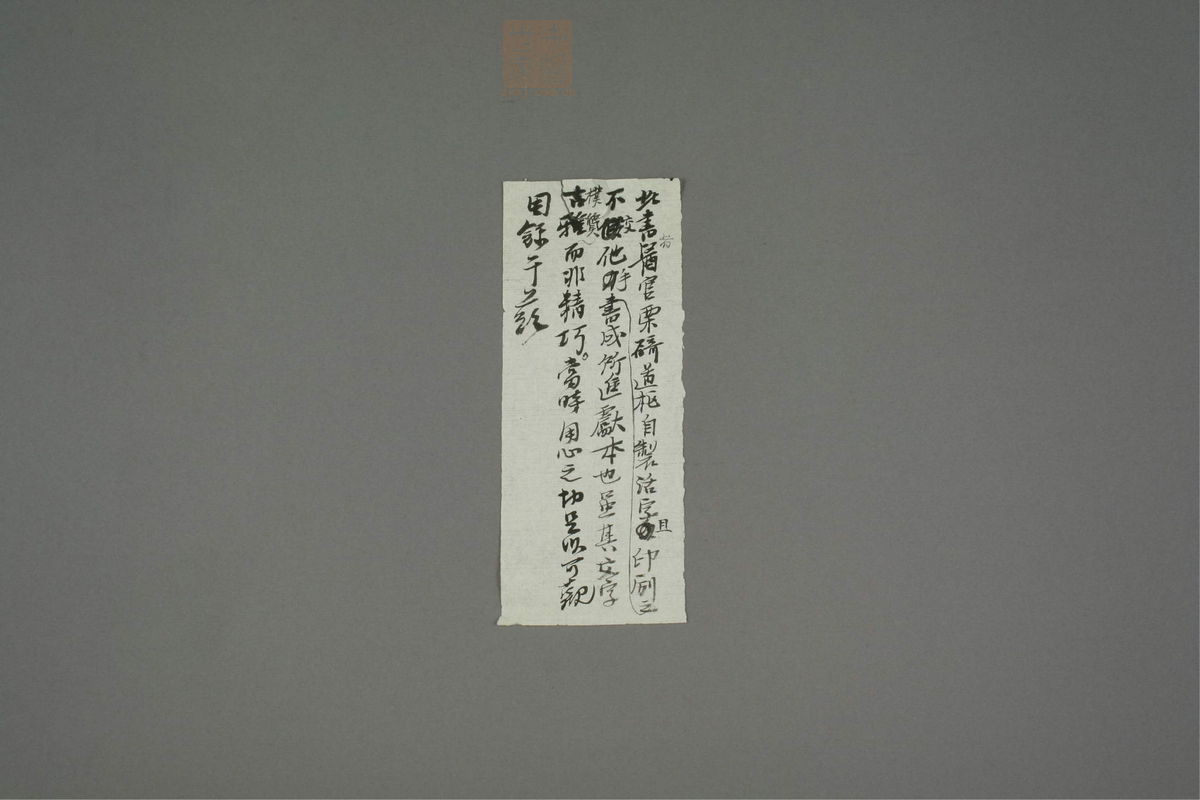 此書醫官栗碕道枢自製活字且印刷之
不交他手書成所進獻本也並其文字
古雅樸質而非精巧。當時用心之切足以可觀
因錄于茲